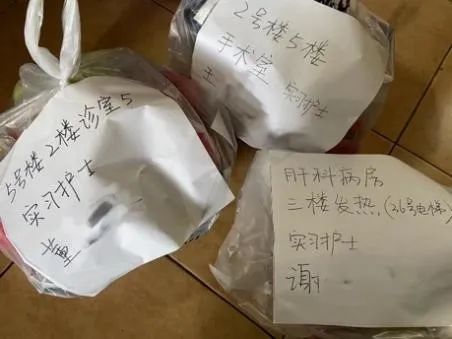 2号楼5楼
手术室 实习护士
王
5号楼2楼诊室5
实习护士
肝科病房
三楼发热(26号电梯)
实习护士
谢